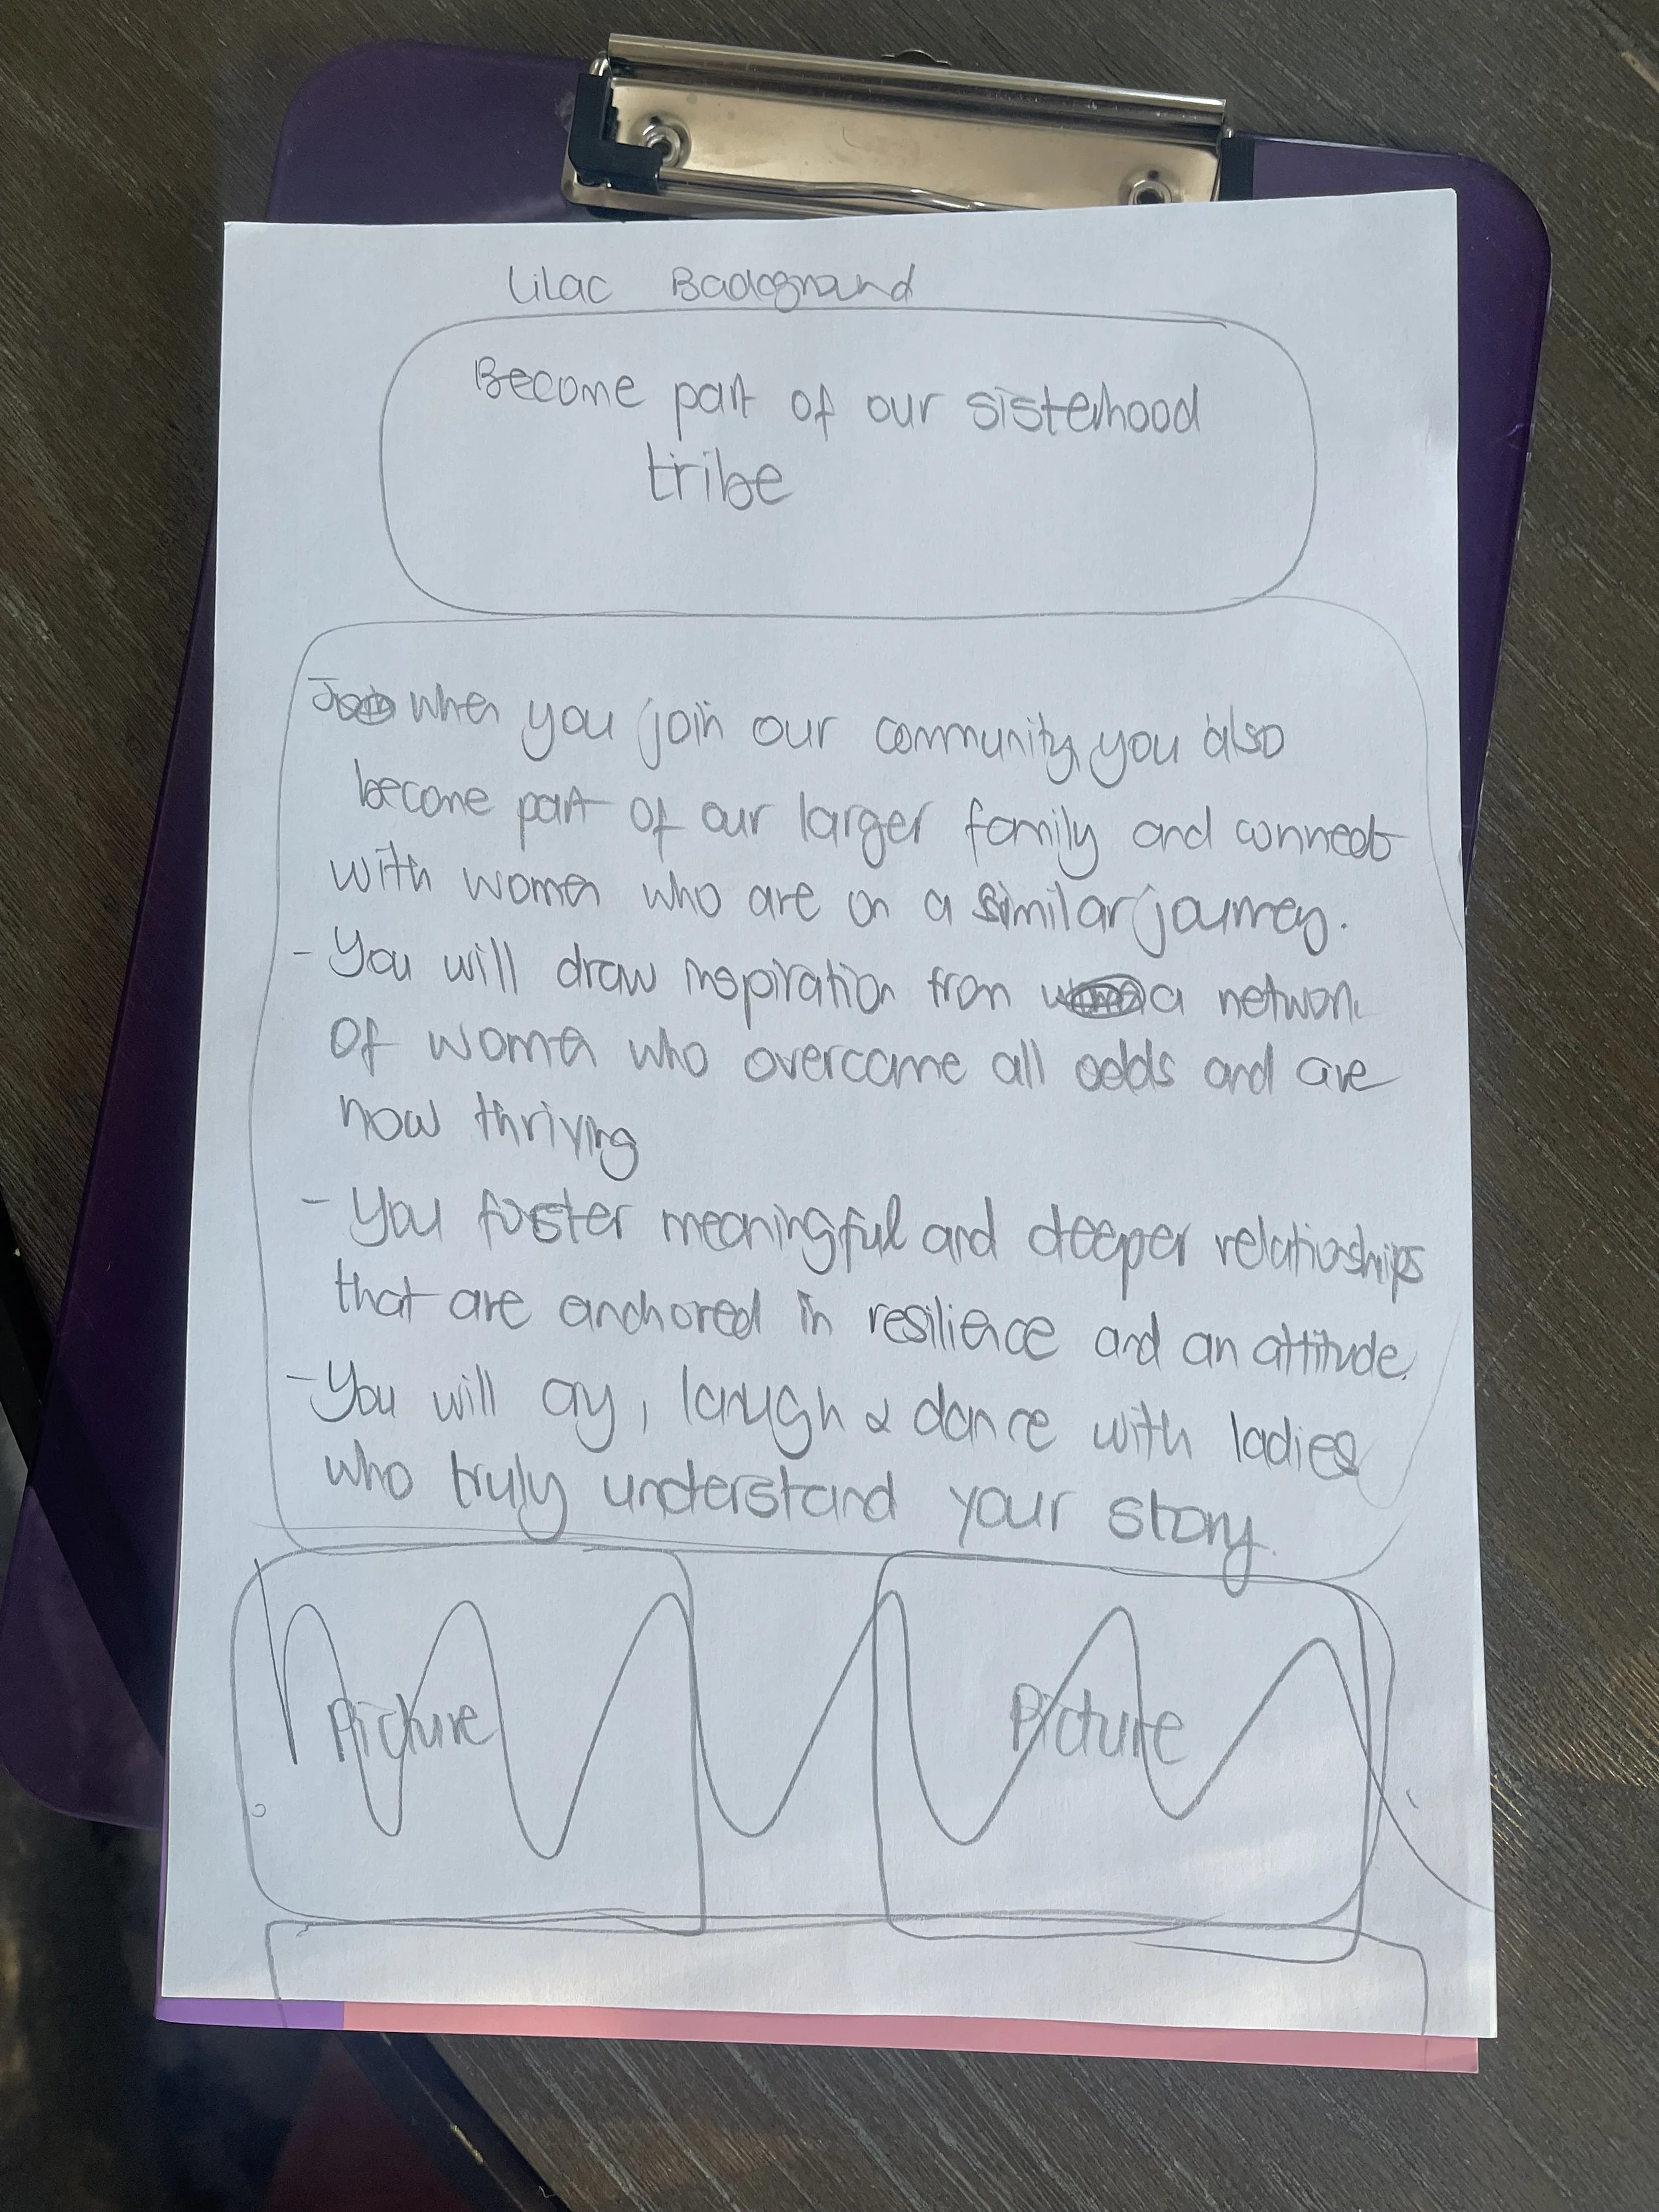 Lilac Background
Become part of our sisterhood
tribe
when you join our community, you also
become part of our larger family and connect
with women who are on a similar journey.
- You will draw inspiration from a network
of women who overcame all odds and are
now thriving
- You foster meaningful and deeper relationships
that are anchored in resilience and an attitude.
- You will cry, laugh & dance with ladies
who truly understand your story.
Picture Picture